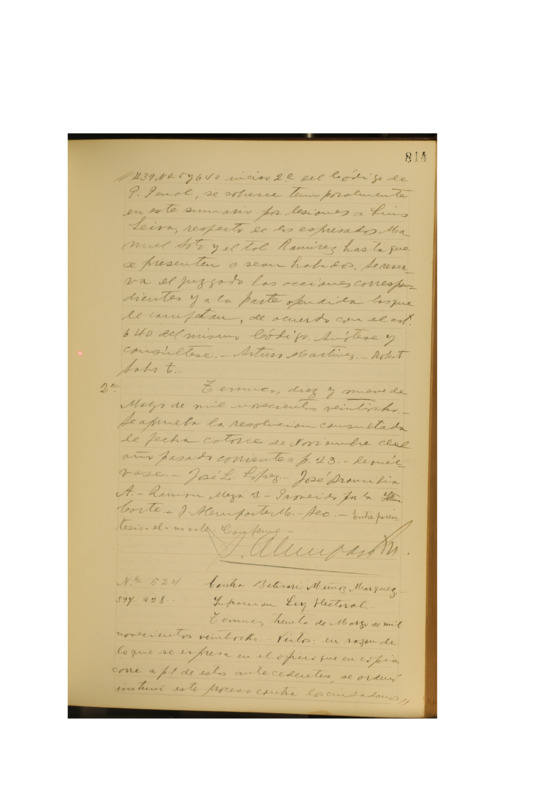 814
639 No 5 y 640 inciso 2º del Código de
P. Penal, se sobresee temporalmente
en este sumario por lesiones a Lino
Leiva, respecto de los espresados Ma-
nuel Soto y el tal Ramirez hasta que
se presenten o sean habidos. Reserva-
va el juzgado las acciones correspon-
dientes y a la parte ofendida las que
le competan, de acuerdo con el art.
640 del mismo Código. Anótese y
consúltese. - Arturo Martinez.
2ª Temuco, diez y nueve de
Marzo de mil novecientos veintiocho. -
Se aprueba la resolucion consultada
de fecha catorce de Noviembre del
año pasado corriente a f. 43. - Devuél-
vase. - José L. Lopez. - José
A. - Ramon Meza B. - Proveido por la Iltma
Corte. - J. M. - Sec. -
Conforme. -
Nº 524 Contra Belisario Muñoz Marquez. -
Infraccion Ley Electoral. -
Temuco, treinta de Marzo de mil
novecientos veintiocho. - Vistos: en razon de
lo que se espresa en el oficio que en copia
corre a f 1 de estos antecedentes, se ordenó
instruir este proceso contra los ciudadanos